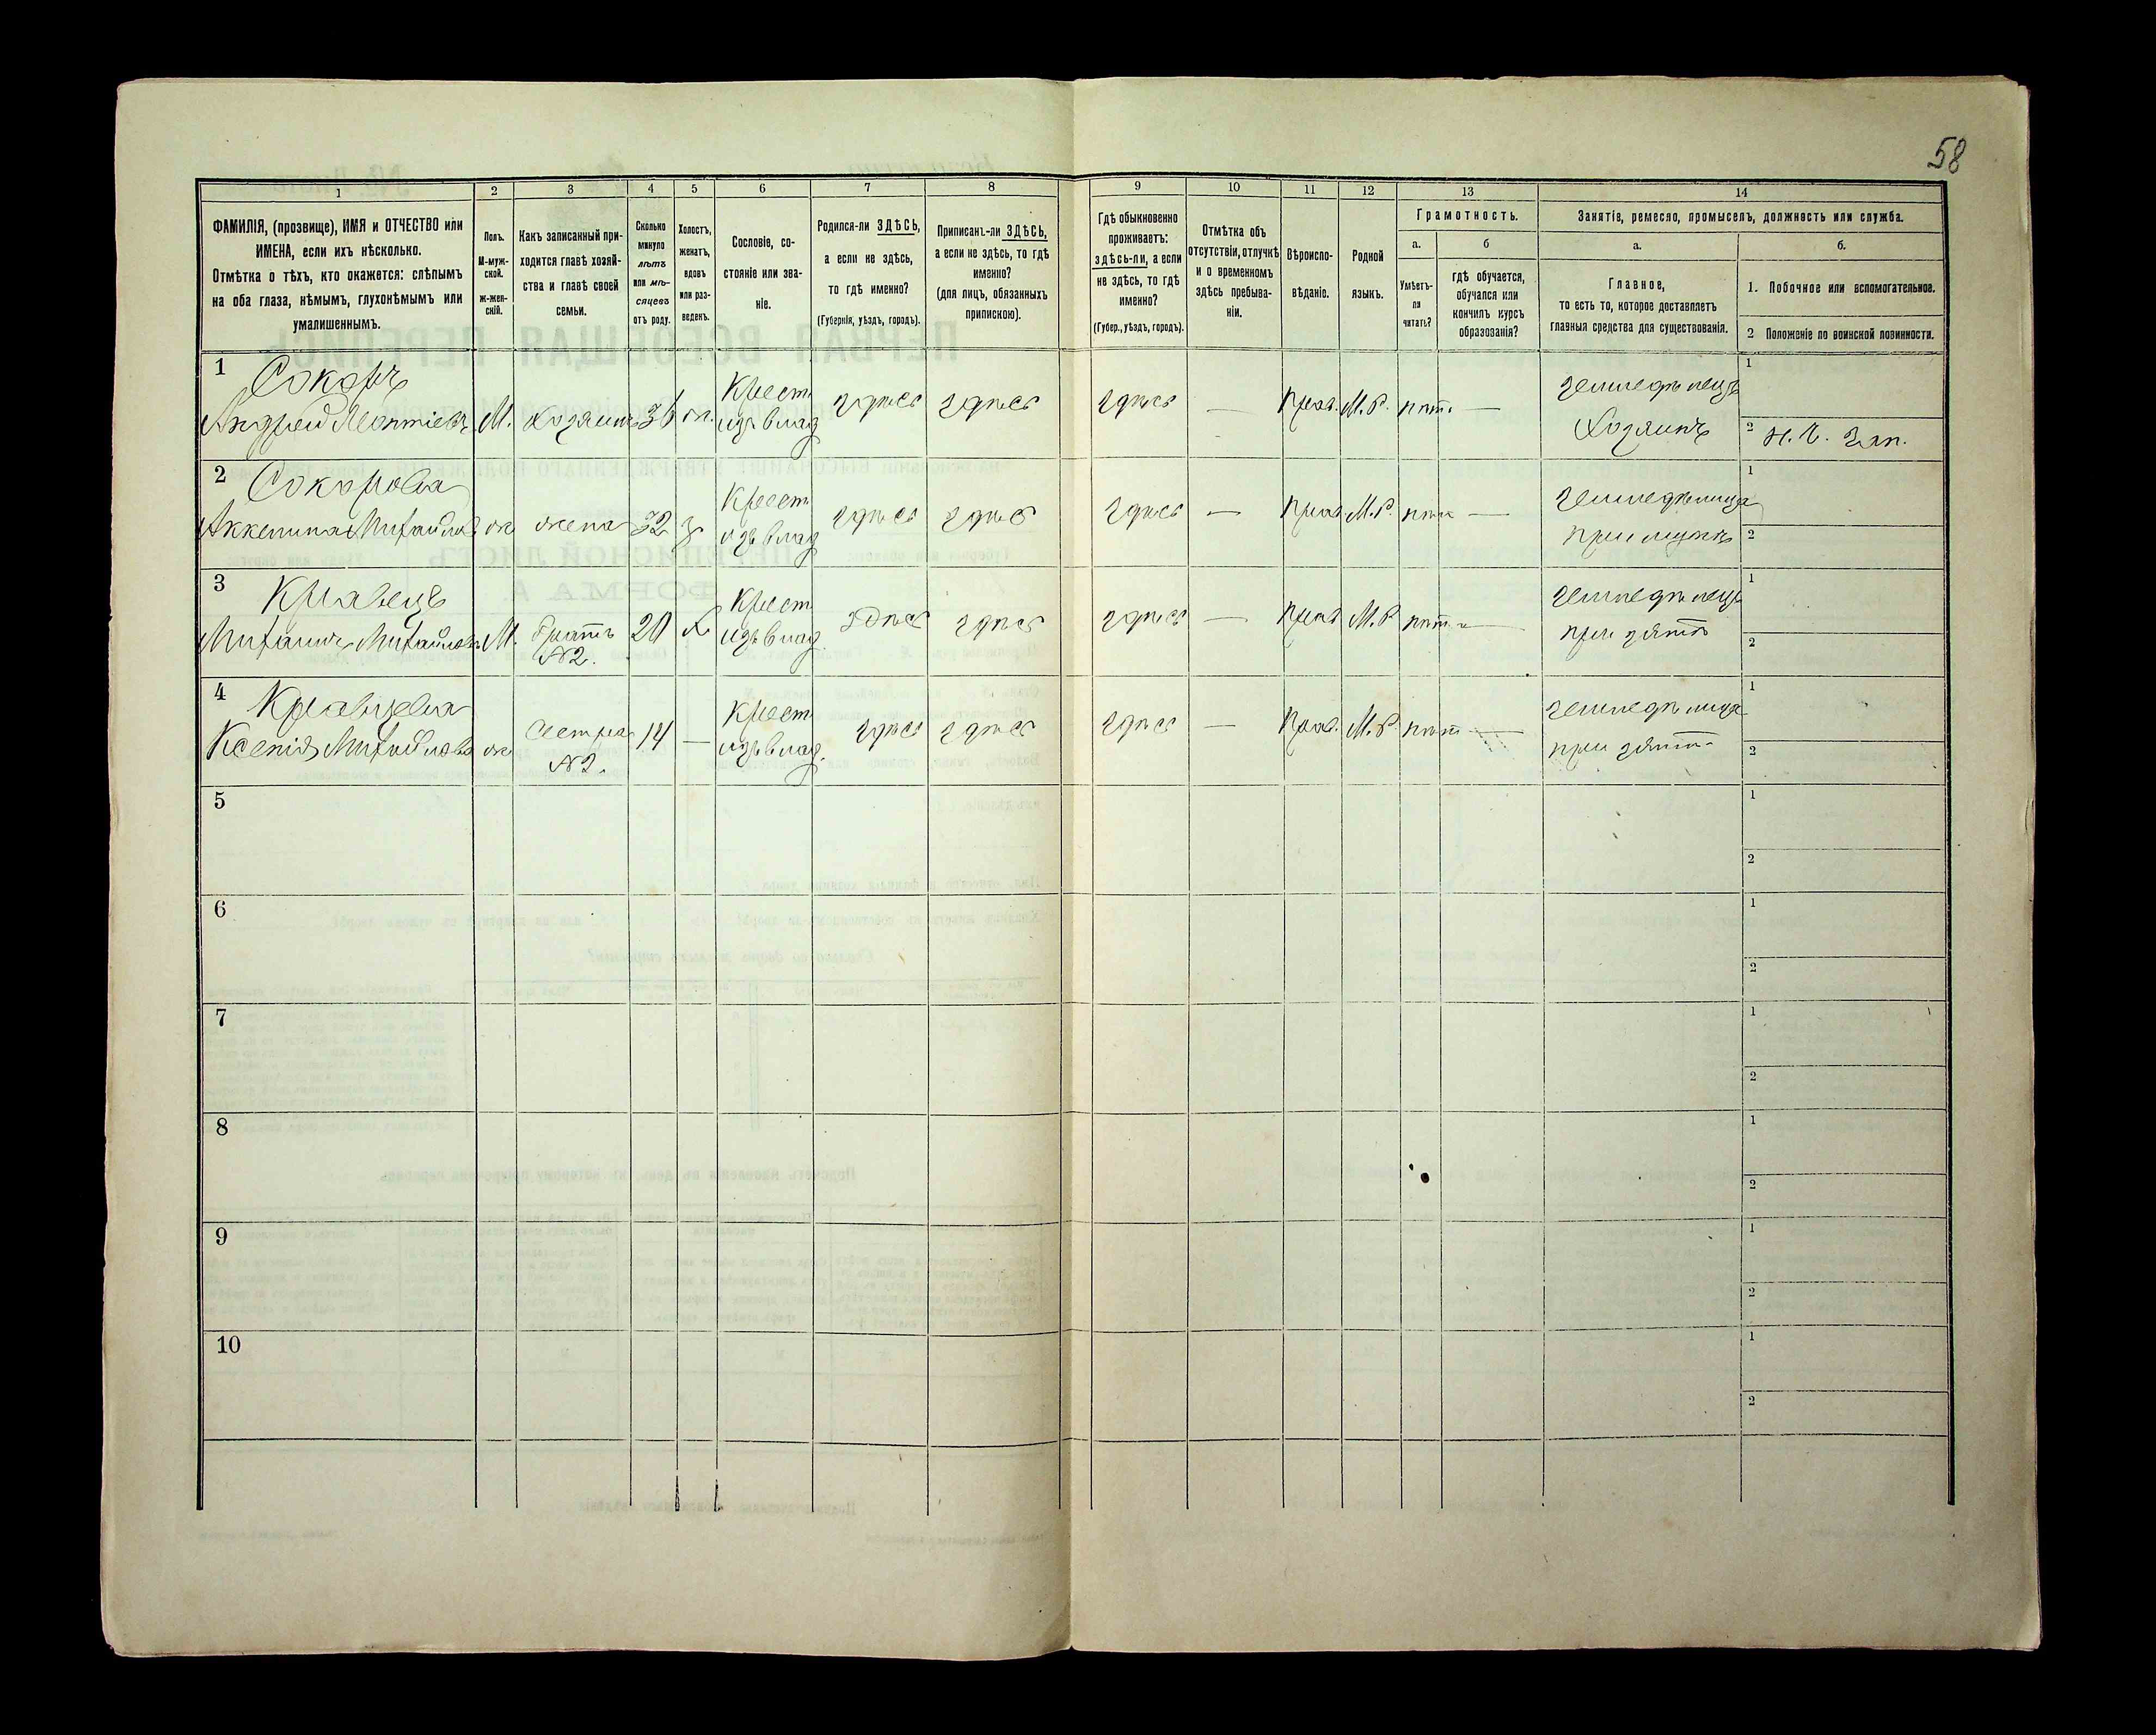 58
1 2 3 4 5 6 7 8 9 10 11 12 13 14
ФАМИЛІЯ, (прозвище), ИМЯ и ОТЧЕСТВО или
ИМЕНА, если ихъ нѣсколько.
Отмѣтка о тѣхъ, кто окажется: слѣпымъ
на оба глаза, нѣмымъ, глухонѣмымъ или
умалишеннымъ.
Полъ.
М-муж-
ской.
ж-жен-
скій.
Какъ записанный при-
ходится главѣ хозяй-
ства и главѣ своей
семьи.
Сколько
минуло
лѣтъ
или мѣ-
сяцевъ
отъ роду.
Холостъ,
женатъ,
вдовъ
или раз-
веденъ.
Сословіе, со-
стояніе или зва-
ніе.
Родился-ли ЗДѢСЬ,
а если не здѣсь,
то гдѣ именно?
(Губернія, уѣздъ, городъ).
Приписанъ-ли ЗДѢСЬ,
а если не здѣсь, то гдѣ
именно?
(для лицъ, обязанныхъ
припискою).
Гдѣ обыкновенно
проживаетъ:
здѣсь-ли, а если
не здѣсь, то гдѣ
именно?
(Губер., уѣздъ, городъ).
Отмѣтка объ
отсутствіи, отлучкѣ
и о временномъ
здѣсь пребыва-
ніи.
Вѣроиспо-
вѣданіе.
Родной
языкъ.
Грамотность.
а.
Умѣетъ-
ли
читать?
б
гдѣ обучается,
обучался или
кончилъ курсъ
образованія?
Занятіе, ремесло, промыселъ, должность или служба.
а.
Главное,
то есть то, которое доставляетъ
главныя средства для существованія.
б.
1. Побочное или вспомогательное.
2 Положеніе по воинской повинности.
1 Сокоръ Крест земледѣлецъ 1
Андрей Леонтіевъ М. Хозяинъ 36 ж. изъ влад здѣсь здѣсь здѣсь — Прав. М.Р. нѣт — Хозяинъ 2 н. ч. зап.
2 Сокорова Крест земледѣлица 1
Аккелина Михайлов ж жена 32 з изъ влад здѣсь здѣсь здѣсь — Прав. М.Р. нѣт — при мужѣ 2
3 Кравецъ Крест земледѣлецъ 1
Михаилъ Михайловъ М. братъ 20 х изъ влад. здѣсь здѣсь здѣсь — Прав М.Р нѣт — при зятѣ 2
№2.
4 Кравцева Крест земледѣлица 1
Ксенія Михайлова ж сестра 14 — изъ влад. здѣсь здѣсь здѣсь — Прав. М.Р. нѣт — при зятѣ 2
№2.
5 1
2
6 1
2
7 1
2
8 1
2
9 1
2
10 1
2